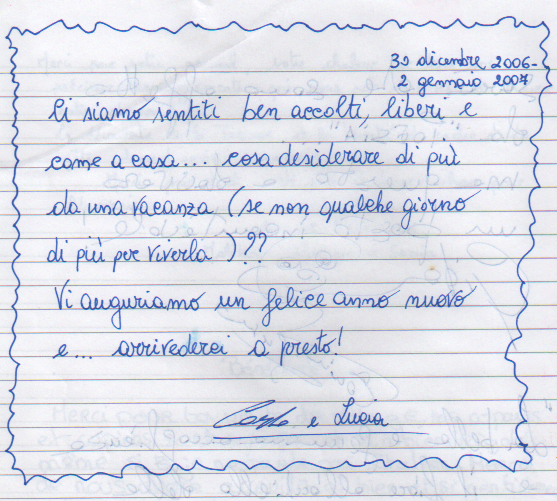 30 dicembre 2006-
2 gennaio 2007
Ci siamo sentiti ben accolti, liberi e
come a casa... cosa desiderare di più
da una vacanza (se non qualche giorno
di più per viverla)??
Vi auguriamo un felice anno nuovo
e... arrivederci a presto!
Carlo e Lucia